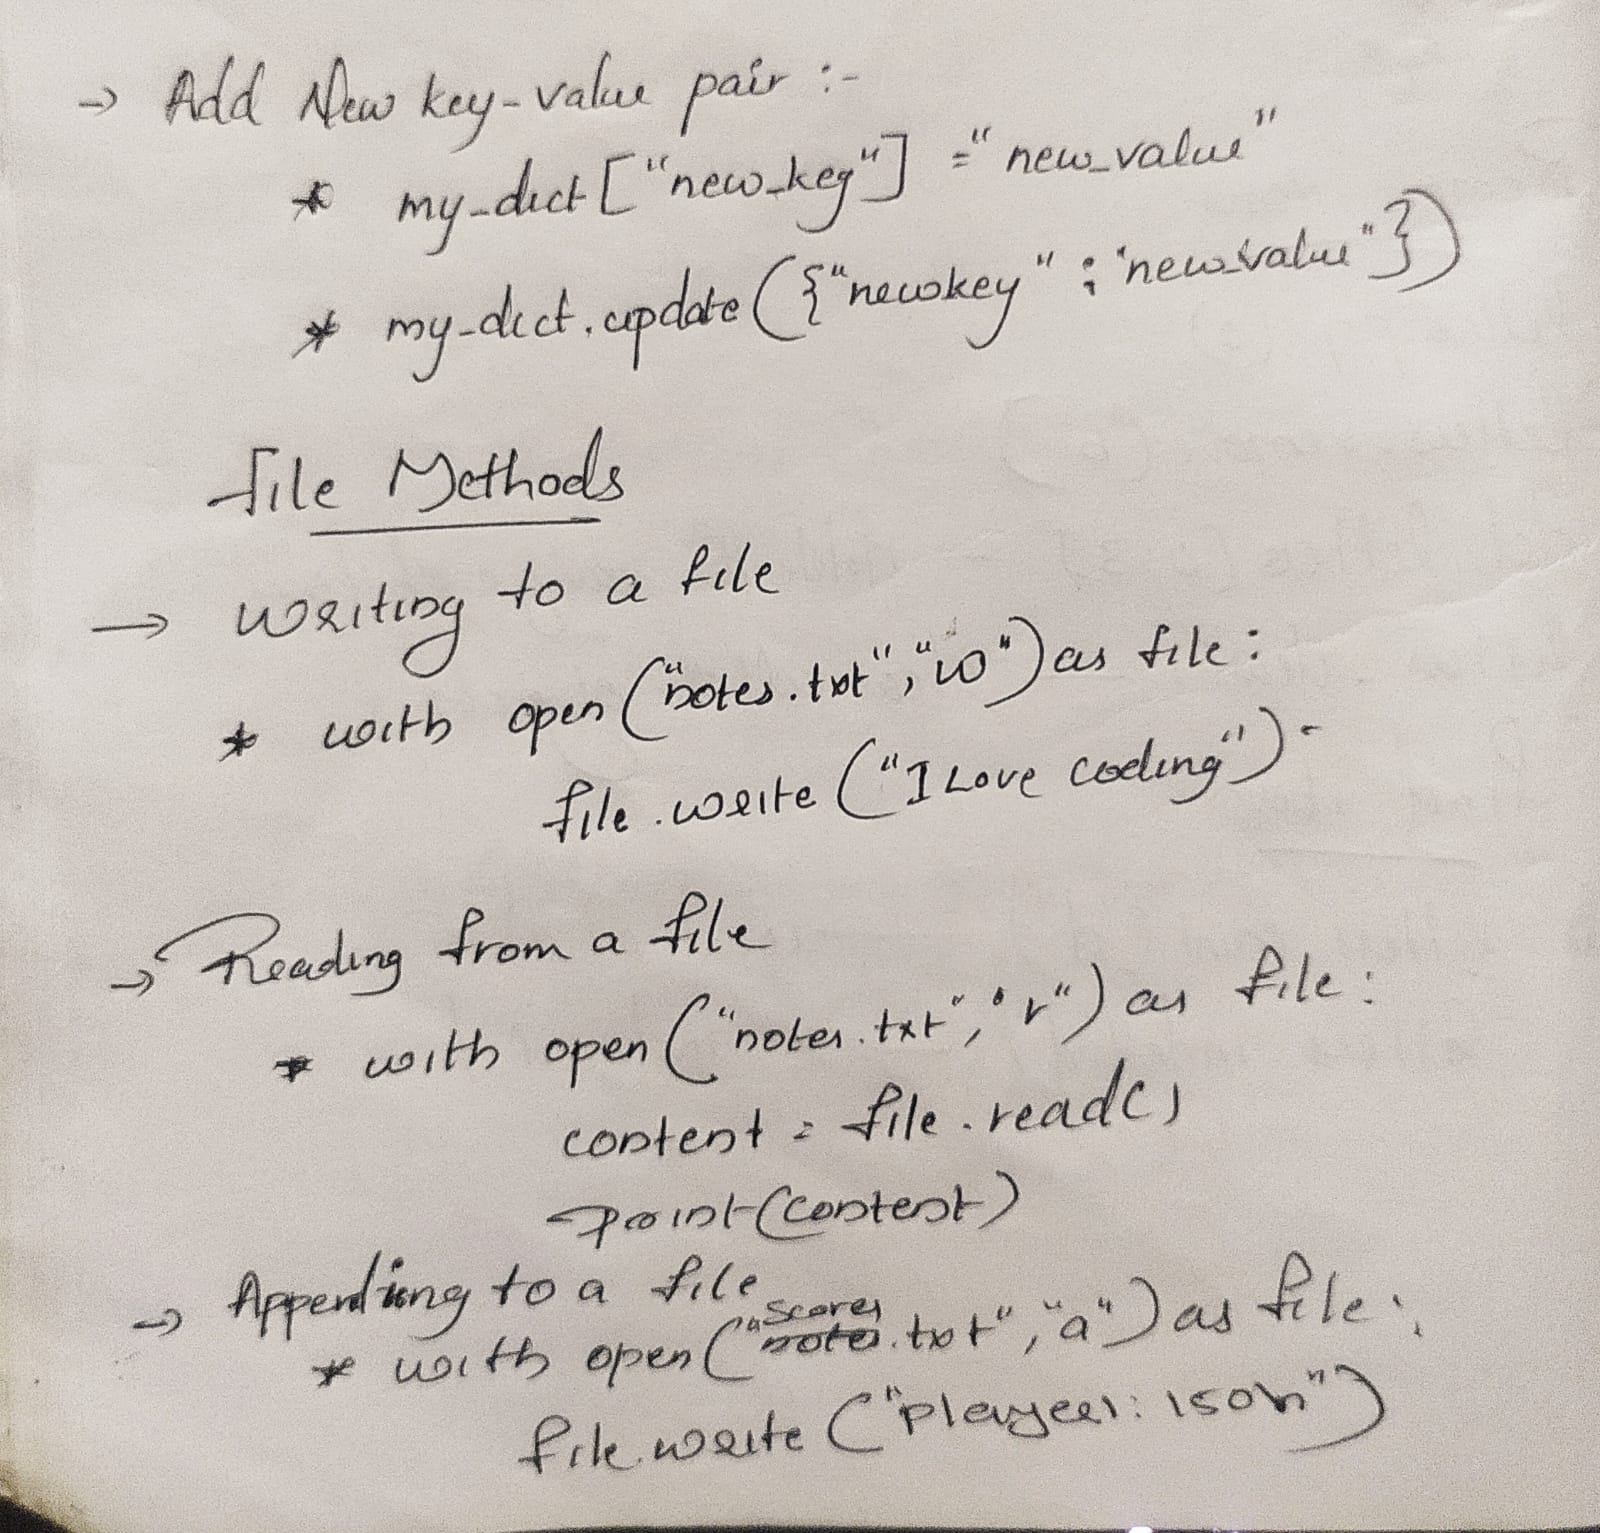 → Add New key-value pair :-
* my_dict["new_key"] = "new_value"
* my_dict.update({"newkey" : "new_value"})
File Methods
→ writing to a file
* with open("notes.txt", "w") as file:
file.write("I Love coding")
→ Reading from a file
* with open("notes.txt", "r") as file:
content = file.read()
print(content)
→ Appending to a file
scores
* with open("notes.txt", "a") as file:
file.write("player1: 150\n")